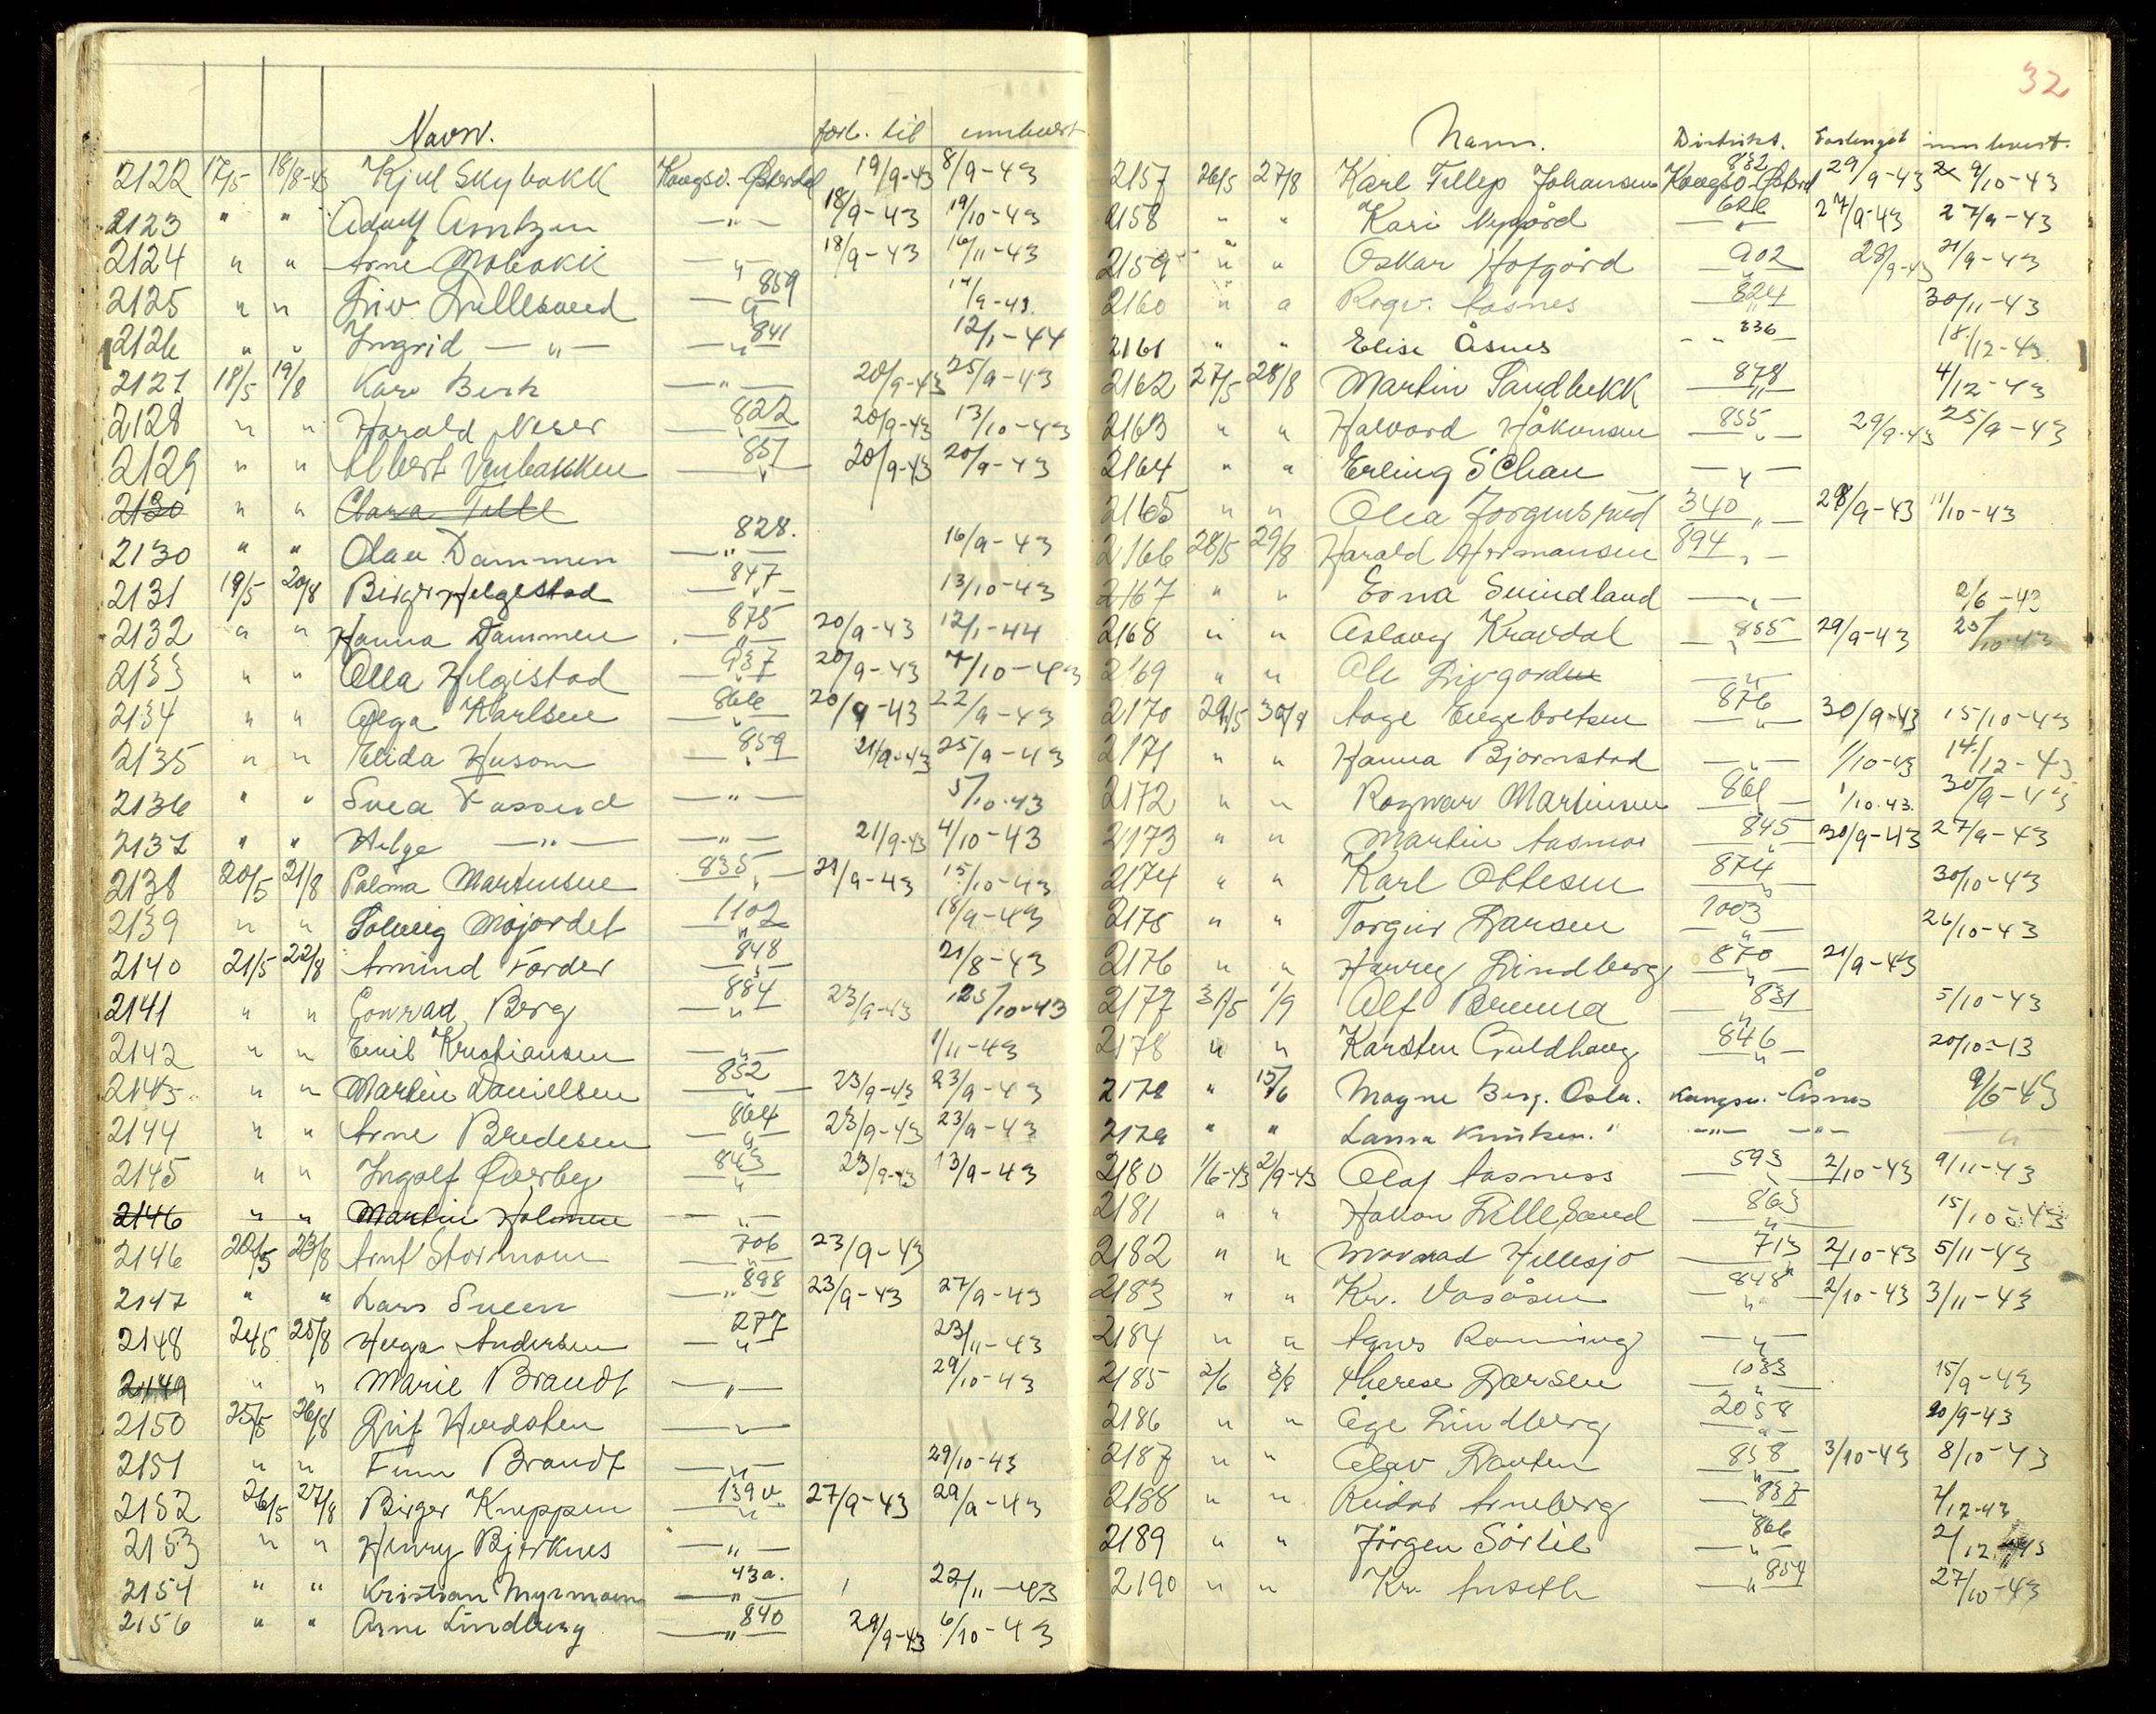 Navn. forl. til innlevert
2122 17/5 18/8-43 Kjell Skybakk Kongsv.-Østerdal 19/9-43 8/9-43
2123 " " Adolf Arntzen —"— 18/9-43 19/10-43
2124 " " Arne Mobakk —"— 18/9-43 16/11-43
2125 " " Liv Lillesæed —"— 859 /9-43.
2126 " " Ingrid —"— —"— 841 12/1-44
2127 18/5 19/8 Kåre Berk —"— 20/9-43 25/9-43
2128 " " Harald Neser —"— 822 20/9-43 13/10-43
2129 " " Albert Verbakken —"— 857 20/9-43 20/9-43
2130 " " Clara
2130 " " Olav Dammen —"— 828. 16/9-43
2131 19/5 20/8 Birger Helgestad —"— 847 13/10-43
2132 " " Hanna Dammen —"— 875 20/9-43 12/1-44
2133 " " Olla Helgestad —"— 937 20/9-43 7/10-43
2134 " " Olga Karlsen —"— 866 20/9-43 22/9-43
2135 " " Elida Husom —"— 859 21/9-43 25/9-43
2136 " " Svea Fosserud —"— 5/10-43
2137 " " Helge —"— —"— 21/9-43 4/10-43
2138 20/5 21/8 Palma Martinsen 835 —"— 21/9-43 15/10-43
2139 " " Solveig Mojordet 1102 —"— 18/9-43
2140 21/5 22/8 Amund Førder 848 —"— 21/8-43
2141 " " Conrad Berg 884 —"— 23/9-43 25/10-43
2142 " " Emil Kristiansen —"— 1/11-43
2143 " " Martin Danielsen 852 —"— 23/9-43 23/9-43
2144 " " Arne Bredesen 864 —"— 23/9-43 23/9-43
2145 " " Ingolf Øverby 843 —"— 23/9-43 13/9-43
2146 " " Martin Holmen —"—
2146 22/5 23/8 Arnt Stormoen 706 —"— 23/9-43
2147 " " Lars Sveen 898 —"— 23/9-43 27/9-43
2148 24/5 25/8 Helga Andersen 277 —"— 23/11-43
2149 " " Marie Brandt —"— 29/10-43
2150 25/5 26/8 Leif —"—
2151 " " Finn Brandt —"— 29/10-43
2152 26/5 27/8 Birger Kneppen 139 —"— 27/9-43 29/9-43
2153 " " Henry Bjerknes —"—
2154 " " Kristian Myrmoen 43a. —"— 22/11-43
2156 " " Arne Lindberg 840 —"— 29/9-43 6/10-43
32
Navn. Distrikt. Forlenget innlevert.
2157 26/5 27/8 Karl Fillip Johansen 832 Kongsv-Østerd 29/9-43 9/10-43
2158 " " Kari Nygård 626 " 27/9-43 27/9-43
2159 " " Oskar Hofgård 902 " 28/9-43 21/9-43
2160 " " Ragv. Aasnes 824 " 30/11-43
2161 " " Elise Åsnes 836 18/12-43.
2162 27/5 28/8 Martin Sandbekk 878 " 4/12-43
2163 " " Halvard Håkonsen 855 —"— 29/9-43 25/9-43
2164 " " Erling Schau —"—
2165 " " Olea Jørgensrud 340 —"— 28/9-43 11/10-43
2166 28/5 29/8 Harald Hermansen 894 —"—
2167 " " Erna Svindland —"— 2/6-43
2168 " " Aslaug Kravdal 855 —"— 29/9-43 20/10-43
2169 " " Ole Livgorden —"—
2170 29/5 30/8 Aage Engebretsen 876 —"— 30/9-43 15/10-43
2171 " " Hanna Bjørnstad —"— 1/10-43 14/12-43
2172 " " Ragnvar Martinsen 861 —"— 1/10-43. 30/9-43
2173 " " Martin Aasmos 845 30/9-43 27/9-43
2174 " " Karl Ottesen 874 —"— 30/10-43
2175 " " Torgeir Larsen 1003 —"— 26/10-43
2176 " " Harry Lindberg 870 —"— 21/9-43
2177 31/5 1/9 Alf Brenna 831 —"— 5/10-43
2178 " " Karsten Guldhaug 846 —"— 20/10-43
2178 " 15/6 Magne Berg. Oslo. Kongsv.-Åsnes 9/6-43
2179 " " Laura Knutsen. " —"— —"— —"—
2180 1/6-43 2/9-43 Olaf Aasness 593 —"— 2/10-43 9/11-43
2181 " " Håkon Lillesand 863 —"— 15/10-43
2182 " " Hellesjø 713 2/10-43 5/11-43
2183 " " Kr. Vasåsen 848 " 2/10-43 3/11-43
2184 " " Agnes Rønning —"—
2185 2/6 3/9 Therese Larsen 1033 —"— 15/9-43
2186 " " Åge Lindberg 2058 —"— 20/9-43
2187 " " Olav 858 —"— 3/10-43 8/10-43
2188 " " Reidar Arneberg 837 —"— 7/12-43
2189 " " Jörgen Sörlie 866 —"— 2/12-43
2190 " " Kr. 854 —"— 27/10-43